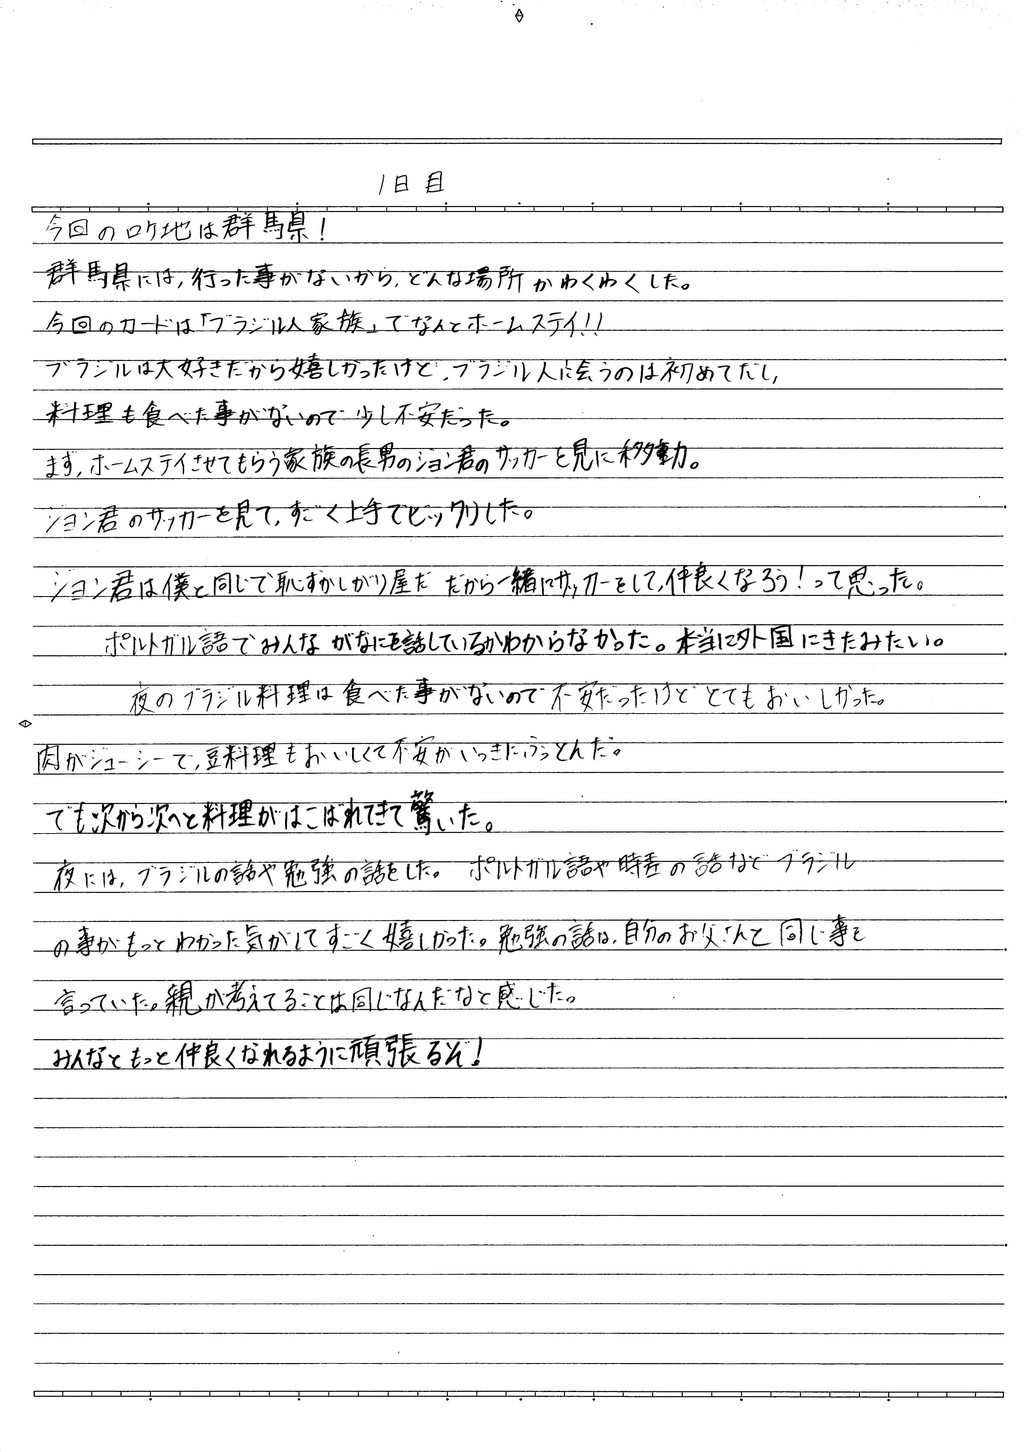 1日目
今回のロケ地は群馬県!
群馬県には,行った事がないから,どんな場所かわくわくした。
今回のカードは「ブラジル人家族」でなんとホームステイ!!
ブラジルは大好きだから嬉しかったけど,ブラジル人に会うのは初めてだし,
料理も食べた事がないので少し不安だった。
まず,ホームステイさせてもらう家族の長男のジョン君のサッカーを見に移動。
ジョン君のサッカーを見て,すごく上手でビックリした。
ジョン君は僕と同じで恥ずかしがり屋だ だから一緒にサッカーをして,仲良くなろう!って思った。
ポルトガル語でみんながなにを話しているかわからなかった。本当に外国にきたみたい。
夜のブラジル料理は食べた事がないので不安だったけどとてもおいしかった。
肉がジューシーで,豆料理もおいしくて不安がいっきにふっとんだ。
でも次から次へと料理がはこばれてきて驚いた。
夜には,ブラジルの話や勉強の話をした。 ポルトガル語や時差の話などブラジル
の事がもっとわかった気がしてすごく嬉しかった。勉強の話は,自分のお父さんと同じ事を
言っていた。親が考えてることは同じなんだなと感じた。
みんなともっと仲良くなれるように頑張るぞ!